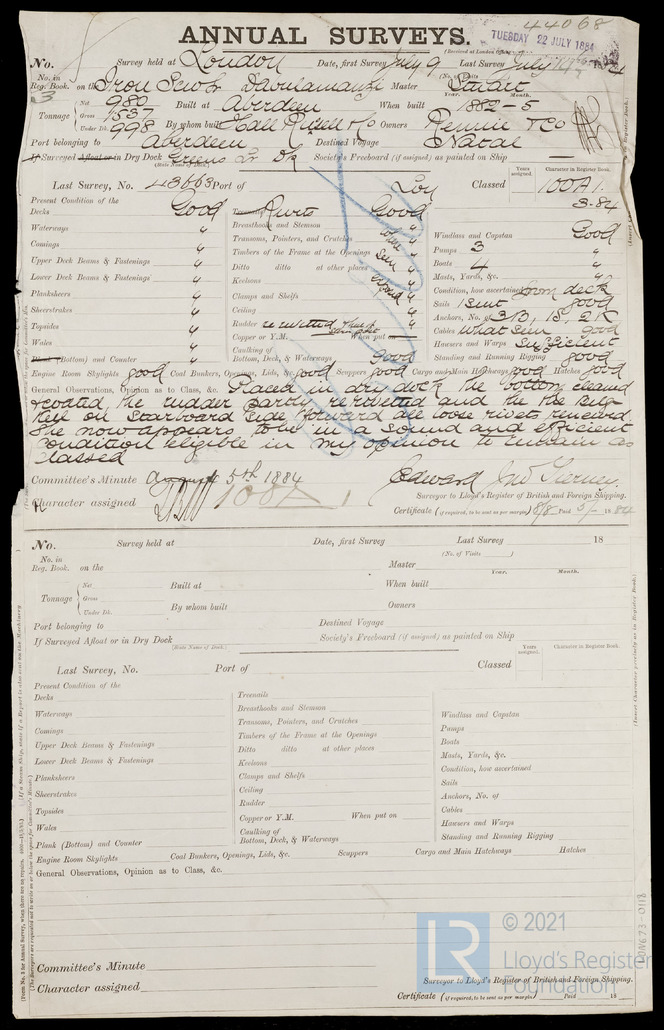 44068
ANNUAL SURVEYS.
(Received at London Office
TUESDAY 22 JULY 1884
No. Survey held at London Date, first Survey July 9 Last Survey July
(No. of Visits
No. in Reg. Book. on the Iron Screw Dabulamanzi Master Stuart
Year. Month.
Tonnage Net 980 Built at Aberdeen When built 1882-5
Gross 1537
Under Dk. 998 By whom built Hall Russell & Co Owners Rennie & Co
Port belonging to Aberdeen Destined Voyage Natal
If Surveyed Afloat or in Dry Dock Greens Lr Dk Society's Freeboard (if assigned) as painted on Ship —
(State Name of Dock.)
Years assigned. Character in Register Book.
Last Survey, No. 43663 Port of Lon Classed 100A1.
3.84
Present Condition of the
Decks Good
Waterways "
Comings "
Upper Deck Beams & Fastenings "
Lower Deck Beams & Fastenings "
Planksheers "
Sheerstrakes "
Topsides "
Wales "
Plank (Bottom) and Counter "
Treenails Rivets Good
Breasthooks and Stemson "
Transoms, Pointers, and Crutches where "
Timbers of the Frame at the Openings seen "
Ditto ditto at other places "
Keelsons "
Clamps and Shelfs "
Ceiling "
Rudder rerivetted "
Copper or Y.M. When put on —
Caulking of Bottom, Deck, & Waterways Good
Windlass and Capstan Good
Pumps 3 "
Boats 4 "
Masts, Yards, &c. "
Condition, how ascertained from deck
Sails 1 suit good
Anchors, No. of 3B, 1S, 2K
Cables what seen good
Hawsers and Warps sufficient
Standing and Running Rigging good
Engine Room Skylights good Coal Bunkers, Openings, Lids, &c. good Scuppers good Cargo and Main Hatchways good Hatches good
General Observations, Opinion as to Class, &c. Placed in dry dock the bottom cleaned
& coated, the rudder partly rerivetted and the bilge
keel on starboard side forward all loose rivets renewed
She now appears to be in a sound and efficient
condition eligible in my opinion to remain as
classed
Committee's Minute August 5th 1884
Edward Jno Tierney.
Surveyor to Lloyd's Register of British and Foreign Shipping.
Character assigned 100A1
Certificate (if required, to be sent as per margin) Paid 18 84
No. Survey held at Date, first Survey Last Survey 18
(No. of Visits )
No. in Reg. Book. on the Master
Year. Month.
Tonnage Net Built at When built
Gross
Under Dk. By whom built Owners
Port belonging to Destined Voyage
If Surveyed Afloat or in Dry Dock Society's Freeboard (if assigned) as painted on Ship
(State Name of Dock.)
Years assigned. Character in Register Book.
Last Survey, No. Port of Classed
Present Condition of the
Decks
Waterways
Comings
Upper Deck Beams & Fastenings
Lower Deck Beams & Fastenings
Planksheers
Sheerstrakes
Topsides
Wales
Plank (Bottom) and Counter
Treenails
Breasthooks and Stemson
Transoms, Pointers, and Crutches
Timbers of the Frame at the Openings
Ditto ditto at other places
Keelsons
Clamps and Shelfs
Ceiling
Rudder
Copper or Y.M. When put on
Caulking of Bottom, Deck, & Waterways
Windlass and Capstan
Pumps
Boats
Masts, Yards, &c.
Condition, how ascertained
Sails
Anchors, No. of
Cables
Hawsers and Warps
Standing and Running Rigging
Engine Room Skylights Coal Bunkers, Openings, Lids, &c. Scuppers Cargo and Main Hatchways Hatches
General Observations, Opinion as to Class, &c.
Committee's Minute
Surveyor to Lloyd's Register of British and Foreign Shipping.
Character assigned
Certificate (if required, to be sent as per margin) Paid 18
LR
© 2021
Lloyd's Register
Foundation
LON673-0118